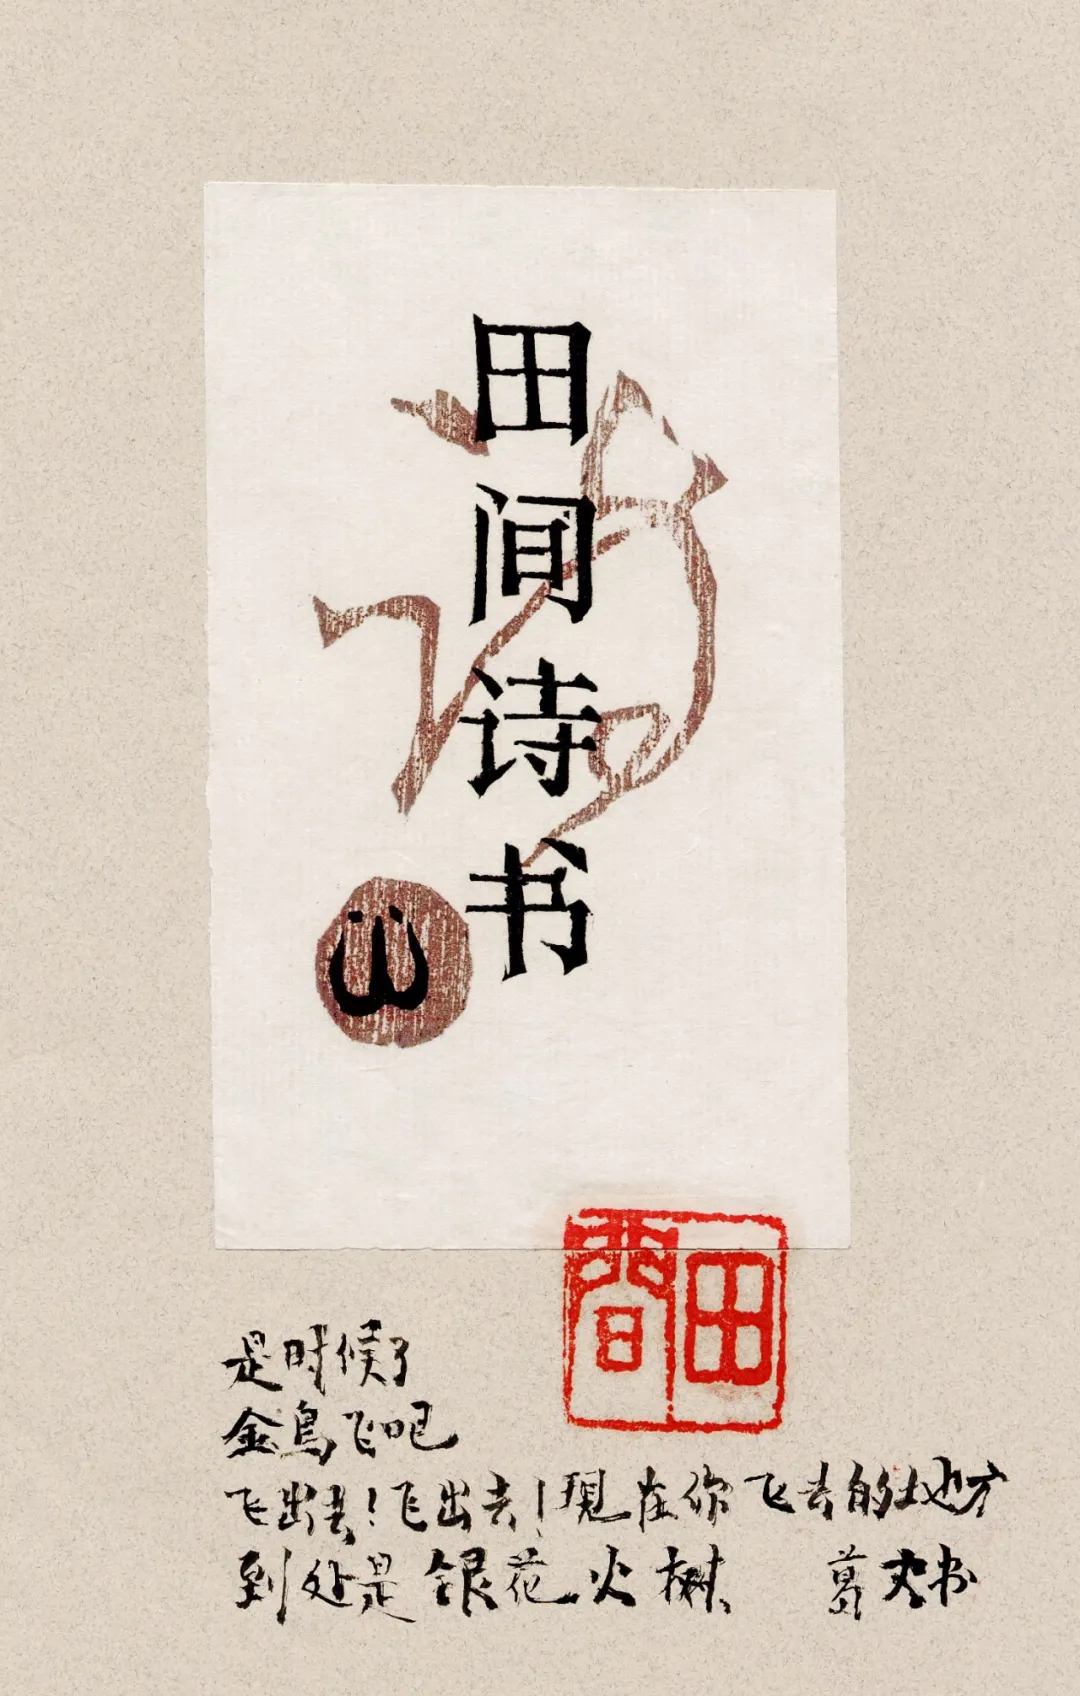 田间诗书
山
田間
是时候了
金鳥飞吧
飞出去!飞出去!現在你飞去的地方
到处是銀花火樹
葛 书